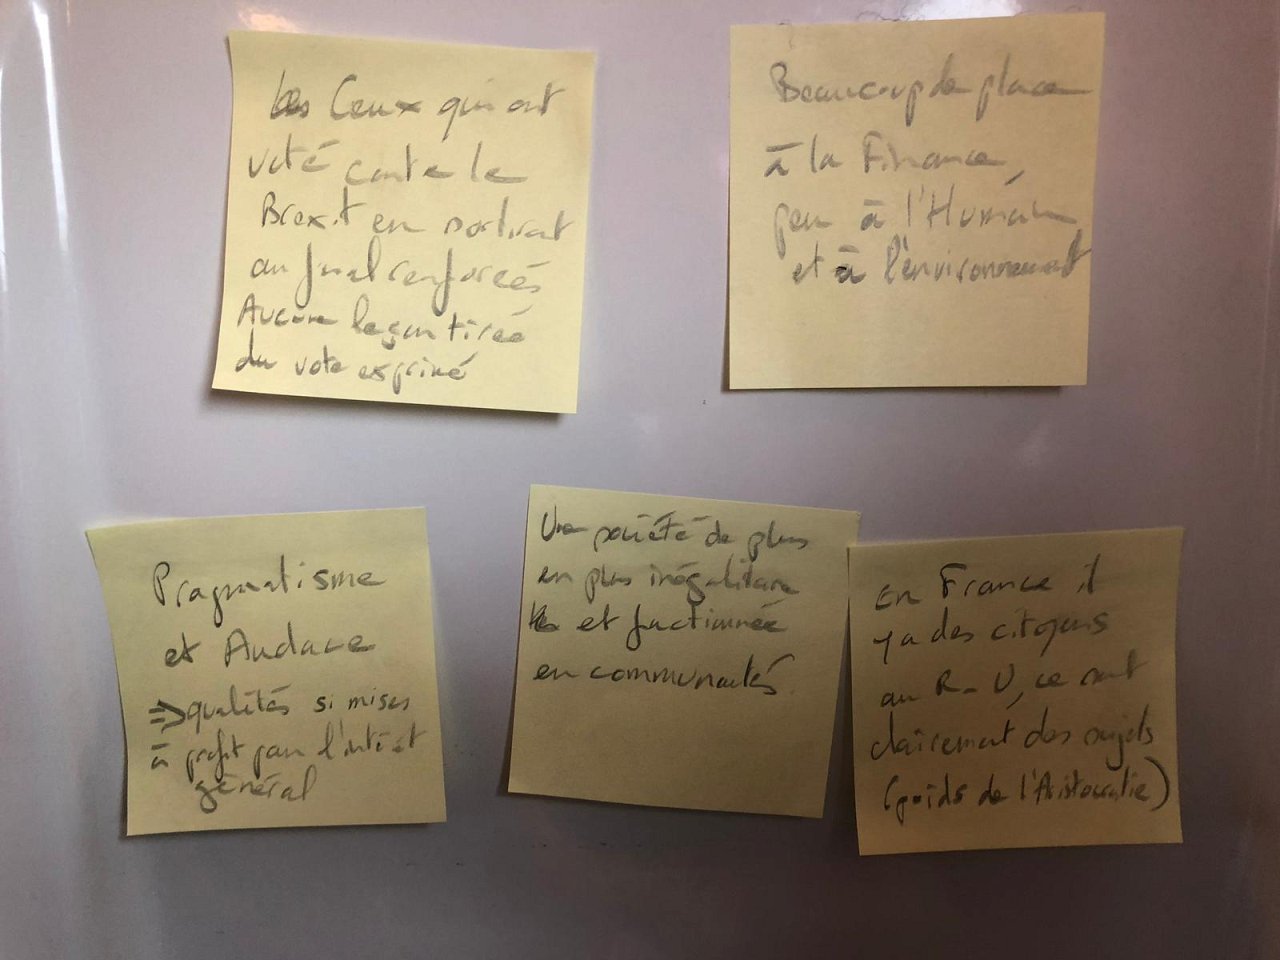 Ceux qui ont
voté contre le
Brexit en sortiront
au final renforcés
Aucune leçon tirée
du vote exprimé
Beaucoup de place
à la Finance,
peu à l'Humain
et à l'environnement
Pragmatisme
et Audace
=> qualités si mises
à profit pour l'intérêt
général
Une société de plus
en plus inégalitaire
et factionnée
en communautés.
En France il
y a des citoyens
au R-U, ce sont
clairement des sujets
(poids de l'Aristocratie)